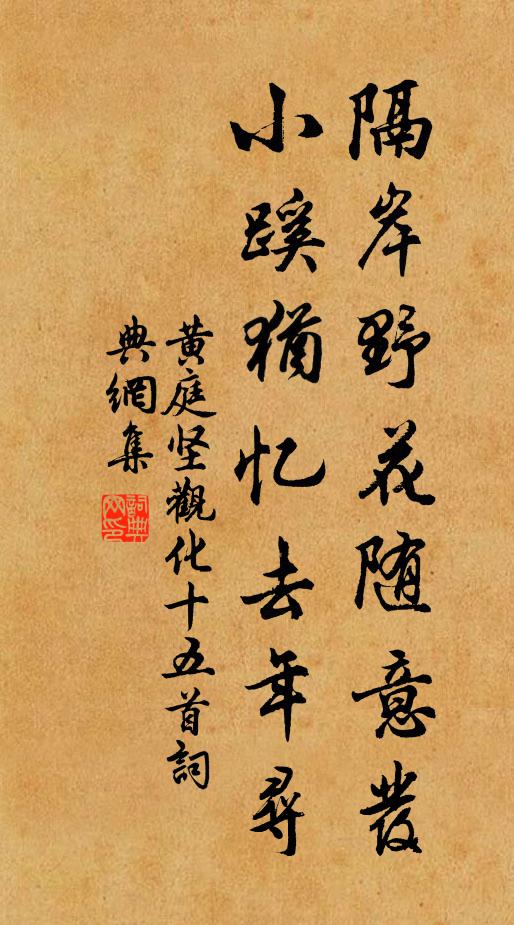 隔岸野花随意發
小蹊猶忆去年尋
黄庭坚觀化十五首詞
典網集
詞典網印